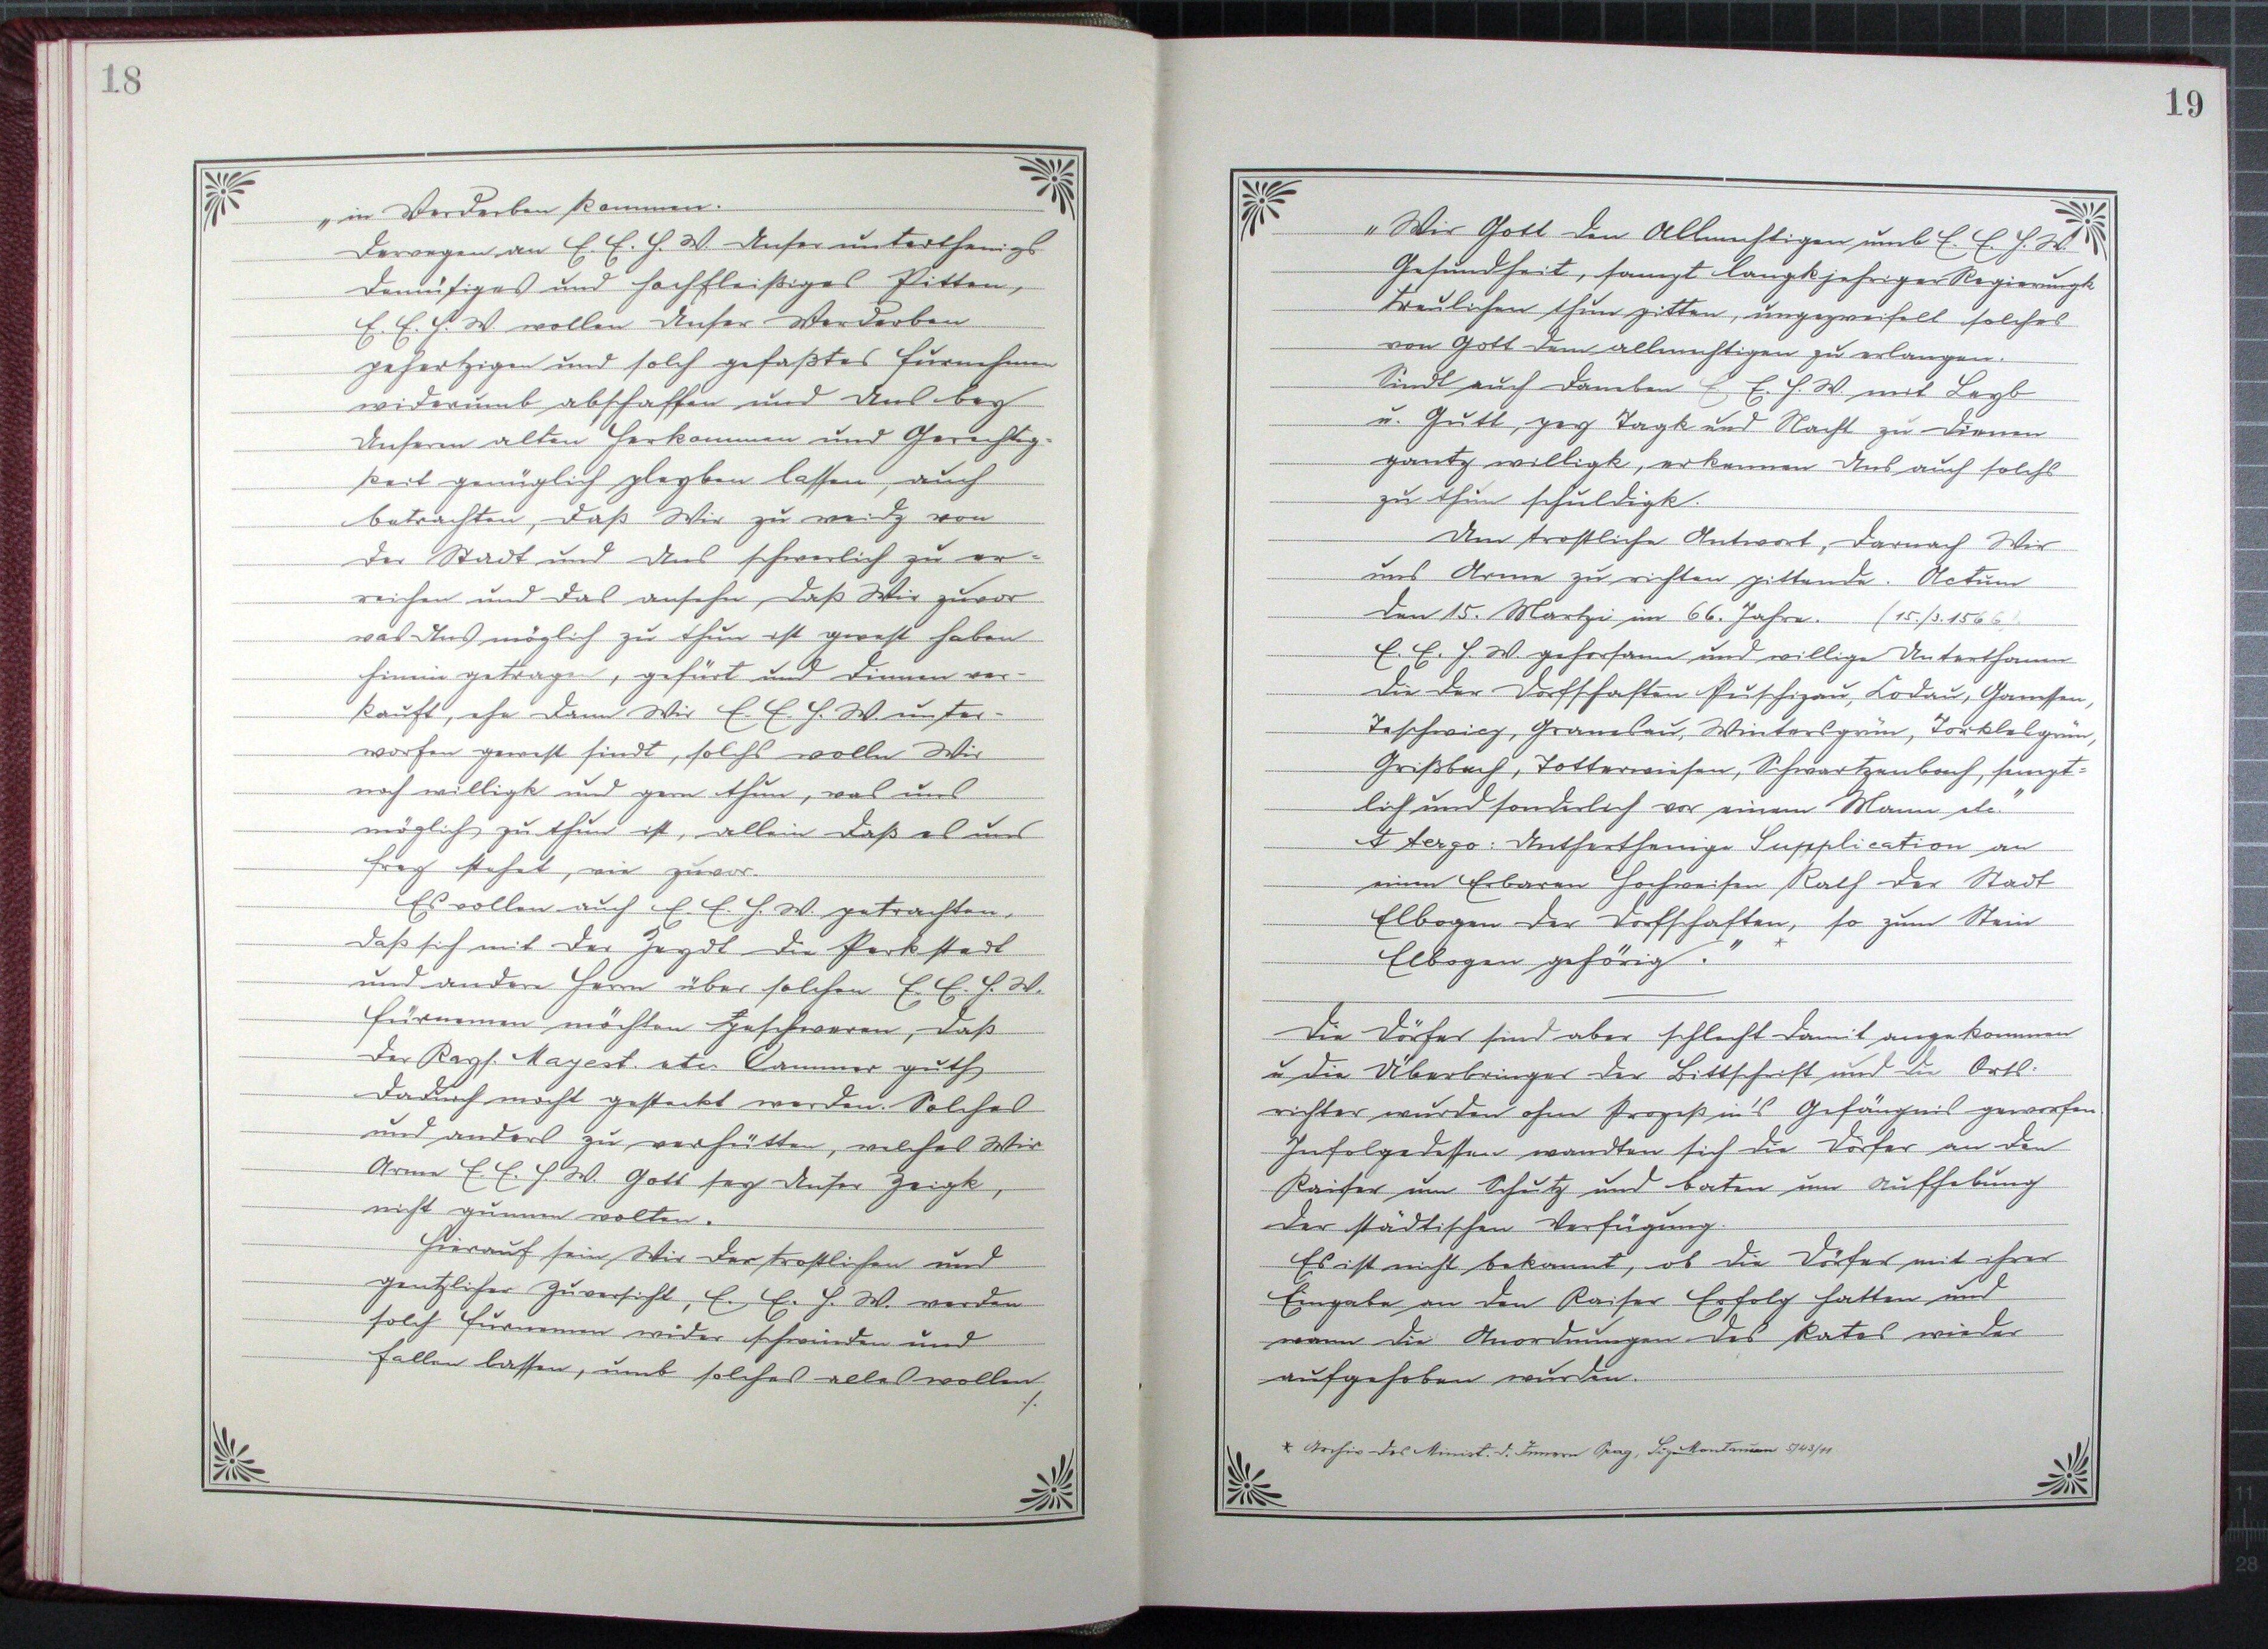 18
„in Verderben kommen.
Derwegen an E. E. H. W. Unser unterthenigs
demütiges und hochfleißiges Pitten,
E. E. H. W. wollen Unser Verderben
pehertzigen und solch gefaßtes Furnehmen
widerumb abschaffen und Uns bey
Unserm alten Herkommen und Gerechtig-
keit genüglich pleyben lassen, auch
betrachten, daß Wir zu weidz von
der Stadt und Uns schwerlich zu er-
reichen und das ansehn, daß Wir zuvor
was Uns möglich zu thun ist gewest haben
hinein getragen, gefürt und dinnen ver-
kauft, ehe dann Wir E. E. H. W. unter-
worfen gewest sindt, solchs wolln Wir
noch willigk und gern thun, was uns
möglich zu thun ist, allein daß es uns
frey stehet, wie zuvor.
Es wollen auch E. E. H. W. petrachten,
daß sich mit der Zeydt die Perkstadt
und andere Herrn über solchen E. E. H. W.
fürnemen möchten peschweren, daß
der Kays. Mayest. etc. Cammer guth
dadurch mocht gesteckt werden. Solches
und anders zu verhütten, welches Wir
Arme E. E. H. W. Gott sey Unser Zeigk,
nicht gunnen wolten.
Hierauf sein Wir der trostlichen und
gentzlicher Zuversicht, E. E. H. W. werden
solch furnemen wider schwinden und
fallen lassen, umb solches alles wollen
./.
19
„Wir Gott den Allmechtigen umb E. E. H. W.
Gesundheit, sampt langkjehriger Regierungk
treulichen thun pitten, ungezweifelt solches
von Gott dem allmechtigen zu erlangen.
Sindt auch daneben E. E. H. W. mit Leyb
u. Gutt, pey Tagk und Nacht zu dienen
gantz willigk, erkennen Uns auch solchs
zu thun schuldigk.
Um trostliche Antwort, darnach Wir
uns Arme zu richten pittende. Actum
den 15. Martzi im 66. Jahre. (15./3. 1566)
E. E. H. W. gehorsame und willige Unterthanen
die der Dorfschaften Puschizau, Lodau, Ganessen,
Teschwicz, Granesau, Wintersgrün, Töuklesgrün,
Grißbach, Totterwiesen, Schwartzenbach, sempt-
lich und sonderlich vor einem Mann etc.“
A tergo: Untherthenige Suppplication an
einen Erbaren Hochweisen Rath der Stadt
Elbogen der Dorfschaften, so zum Stein
Elbogen gehörig.“ *
Die Dörfer sind aber schlecht damit angekommen
u die Überbringer der Bittschrift und die Orts-
richter wurden ohne Prozeß in's Gefängnis geworfen.
Infolgedessen wandten sich die Dörfer an den
Kaiser um Schutz und baten um Aufhebung
der städtischen Verfügung.
Es ist nicht bekannt, ob die Dörfer mit ihrer
Eingabe an den Kaiser Erfolg hatten und
wann die Anordnungen des Rates wieder
aufgehoben wurden.
* Archiv des Minist. d. Innern Prag, 5743/11
11
28